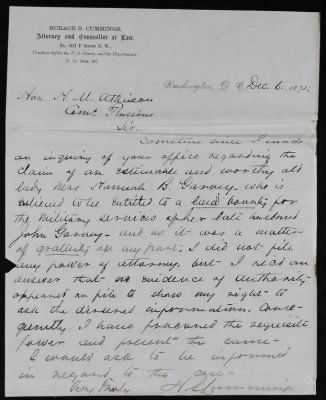 HORACE S. CUMMINGS,
Attorney and Counsellor at Law,
No. 1411 F Street N. W.,
Practices before the U. S. Courts, and the Departments.
P. O. Box
Washington, D. C. Dec. 6. 187
Hon. H. M. Atkinson
Com. Pensions
Sir.
Sometime since I made
an inquiry of your office regarding the
claim of an estimable and worthy old
lady Mrs. Hannah B. Garvey. who is
believed to be entitled to a land bounty for
the Military services of her late husband
John Garvey- and as it was a matter
of gratuity on my part; I did not file
any power of attorney. but I rec'd an
answer that- no evidence of authority
appeared on file to show my right- to
ask the desired information. Conse-
quently I have procured the requisite
power and present the same-
I would ask to be informed
in regard to the case-
Very Truly
H S Cummings